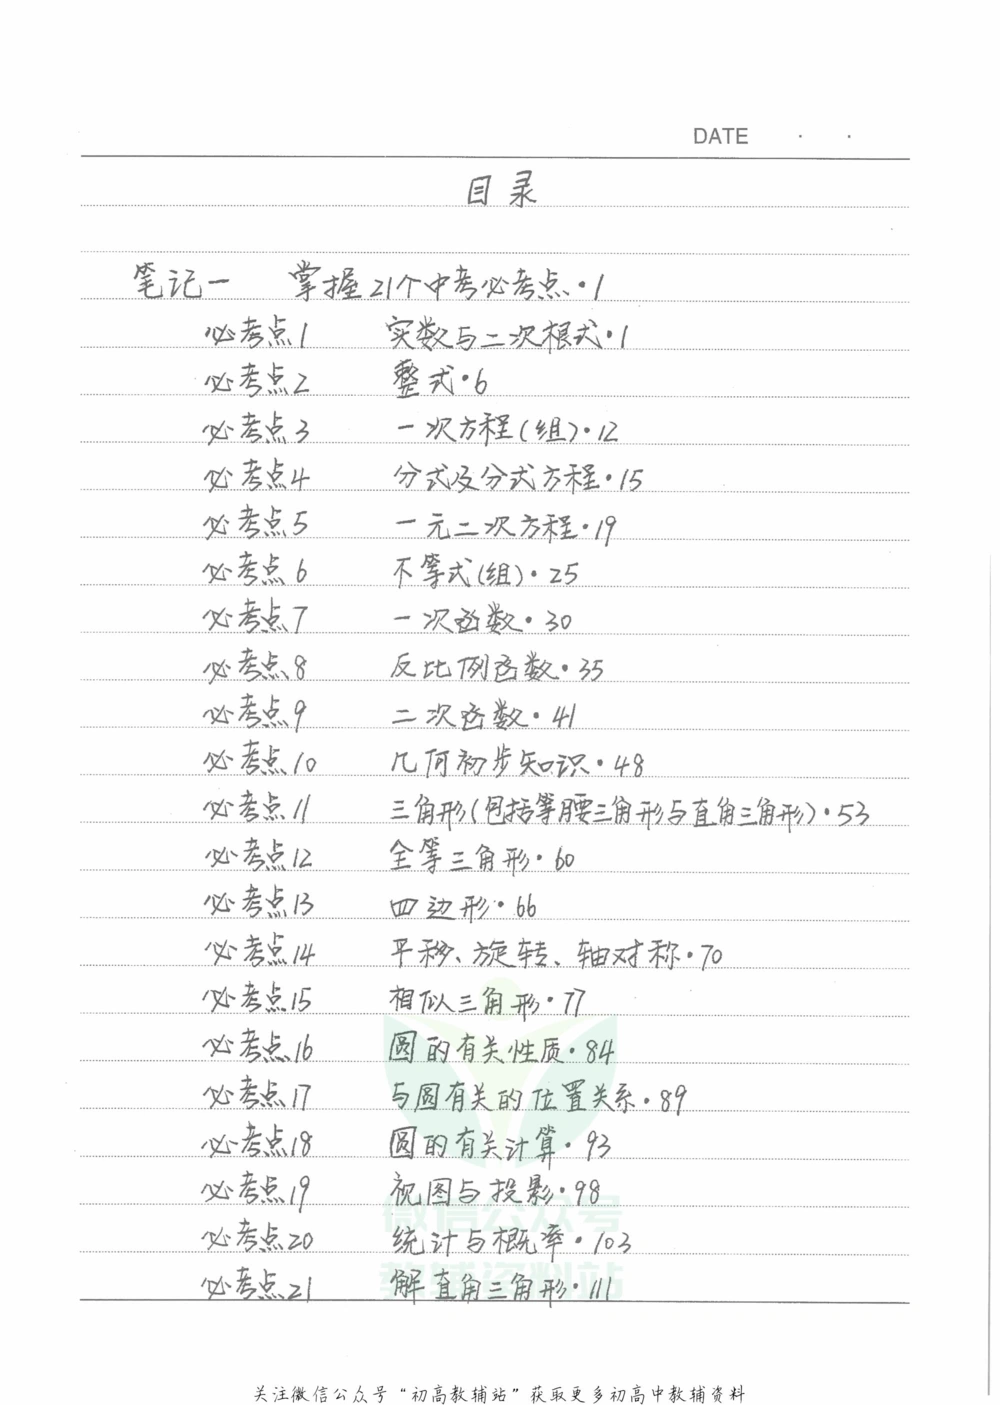 DATE · ·
目录
笔记一 掌握21个中考必考点·1
必考点1 实数与二次根式·1
必考点2 整式·6
必考点3 一次方程(组)·12
必考点4 分式及分式方程·15
必考点5 一元二次方程·19
必考点6 不等式(组)·25
必考点7 一次函数·30
必考点8 反比例函数·35
必考点9 二次函数·41
必考点10 几何初步知识·48
必考点11 三角形(包括等腰三角形与直角三角形)·53
必考点12 全等三角形·60
必考点13 四边形·66
必考点14 平移、旋转、轴对称·70
必考点15 相似三角形·77
必考点16 圆的有关性质·84
必考点17 与圆有关的位置关系·89
必考点18 圆的有关计算·93
必考点19 视图与投影·98
微信公众号
必考点20 统计与概率·103
教辅资料站
必考点21 解直角三角形·111
关注微信公众号“初高教辅站”获取更多初高中教辅资料